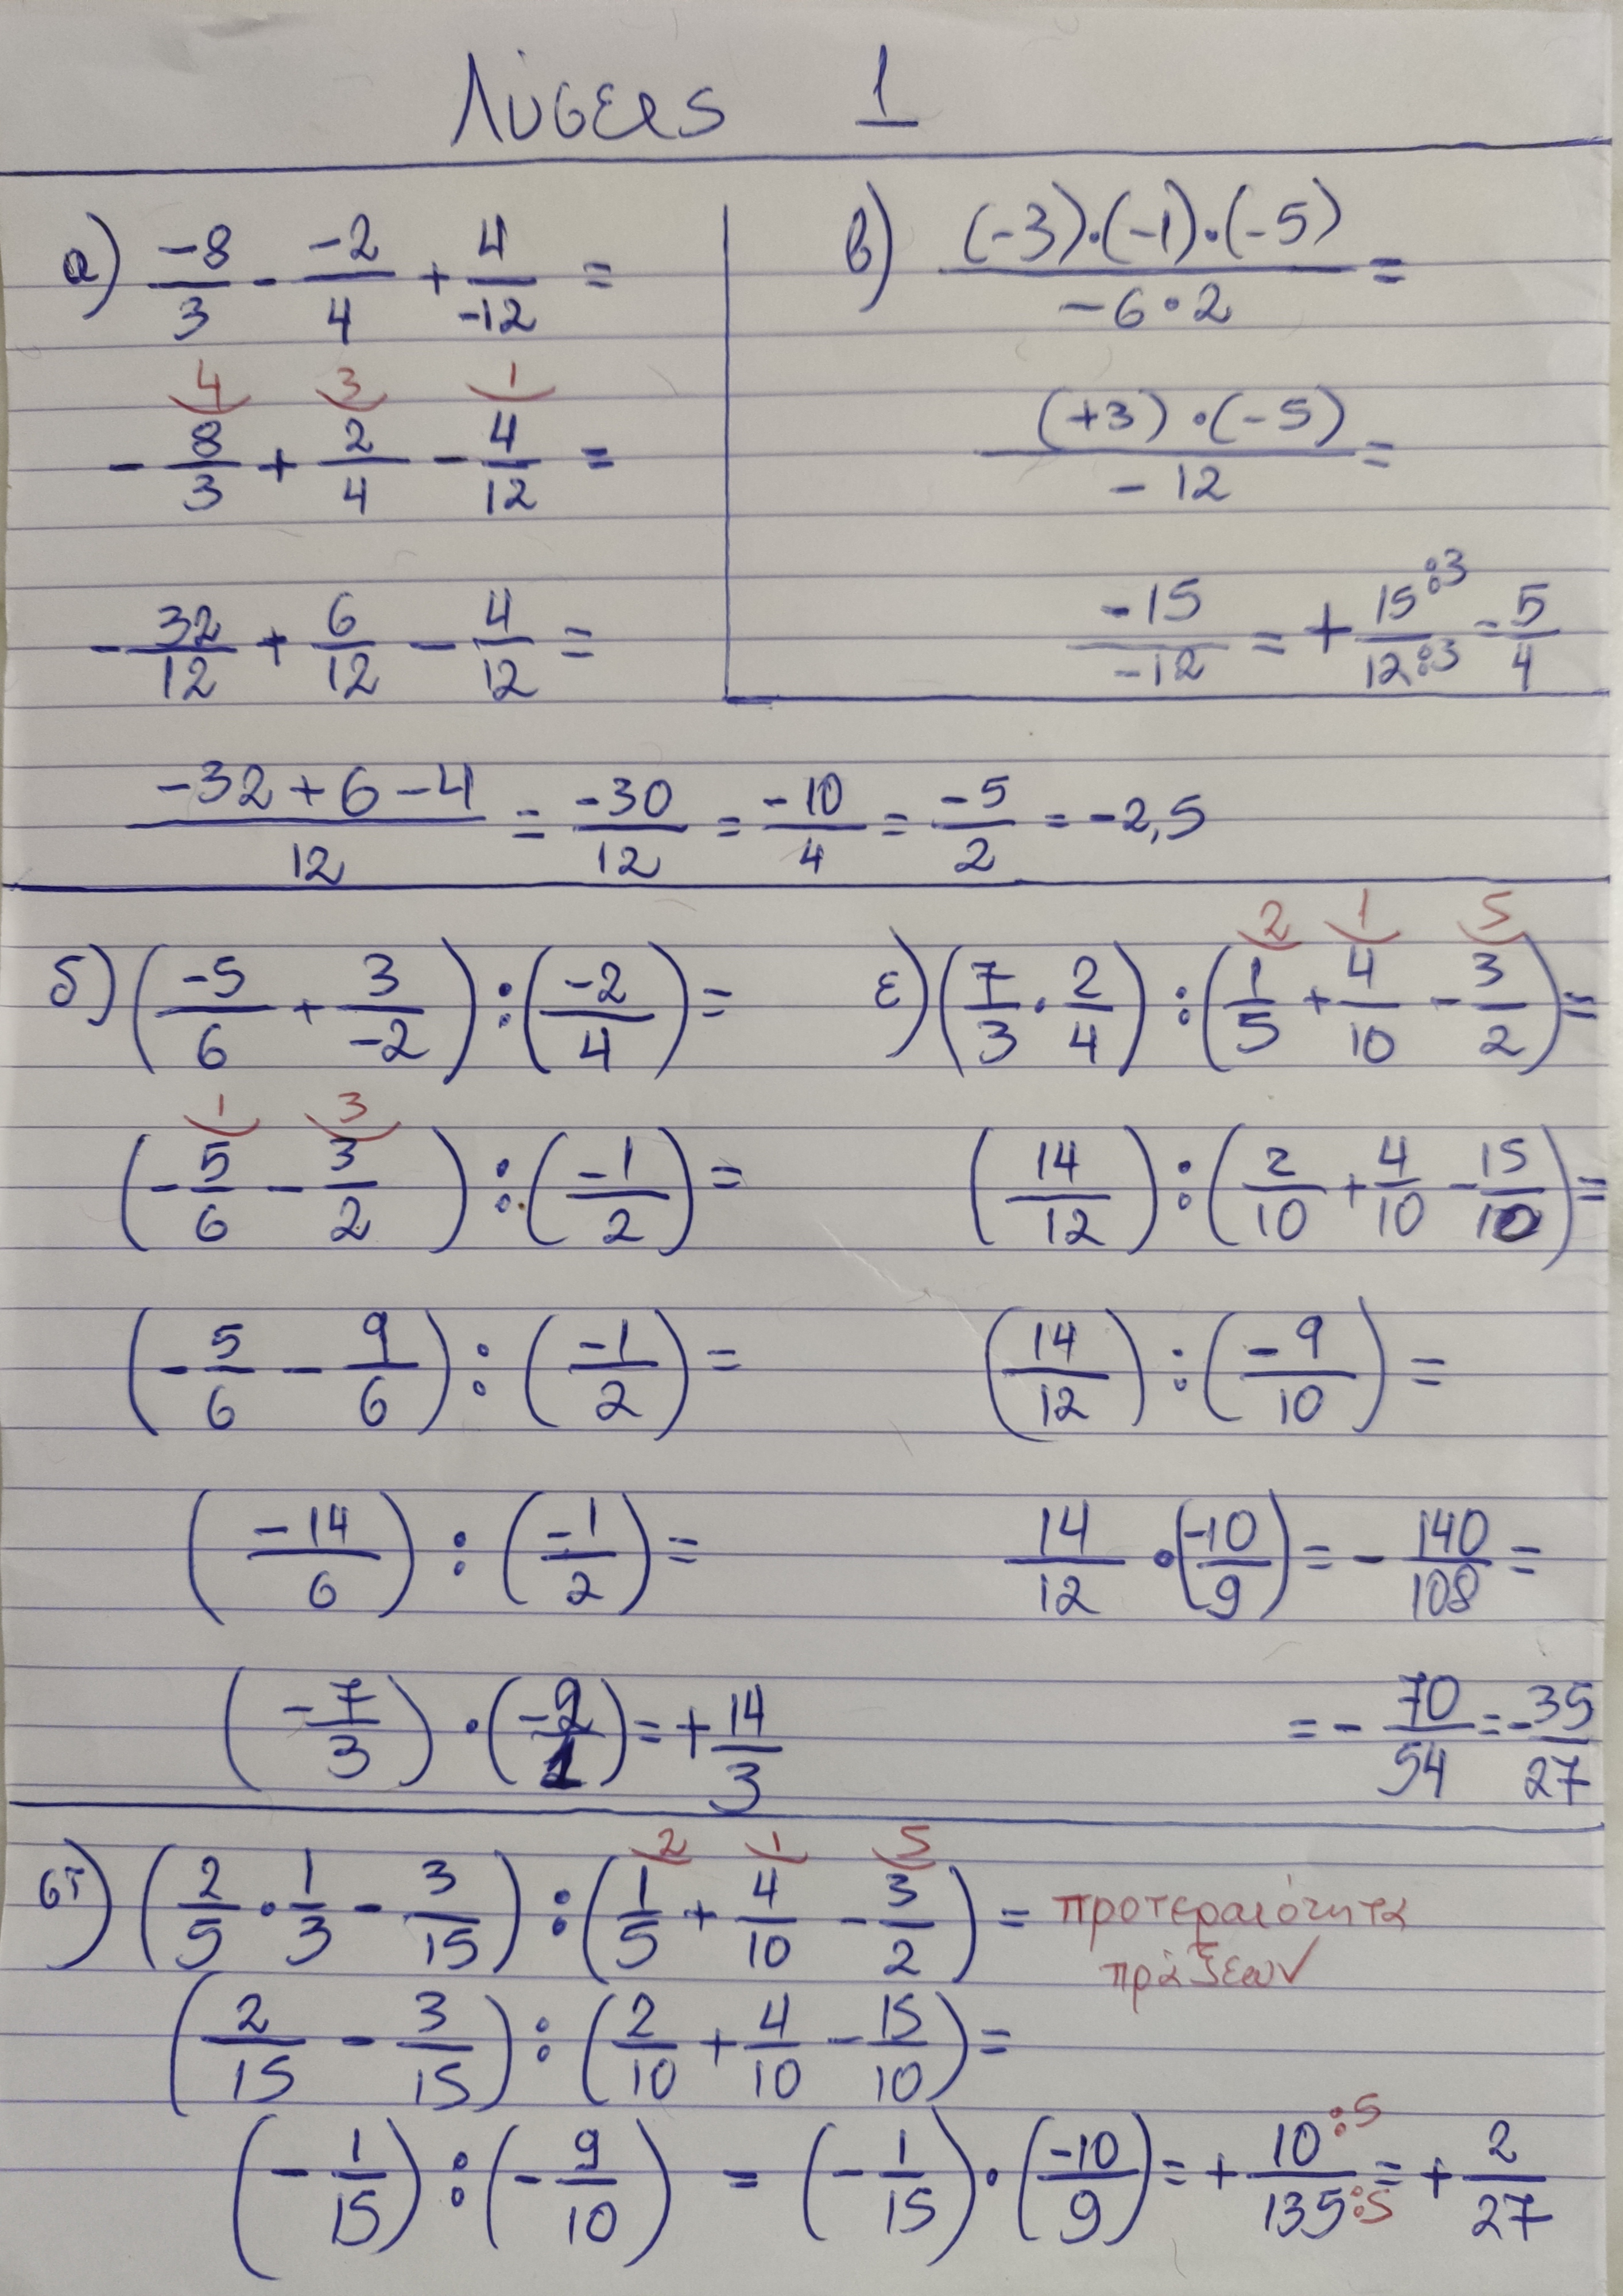 Λύσεις 1
α) -8/3 - -2/4 + 4/-12 =
4 3 1
- 8/3 + 2/4 - 4/12 =
- 32/12 + 6/12 - 4/12 =
-32+6-4/12 = -30/12 = -10/4 = -5/2 = -2,5
β) (-3)·(-1)·(-5)/-6·2 =
(+3)·(-5)/-12 =
-15/-12 = + 15:3/12:3 = 5/4
δ) (-5/6 + 3/-2) : (-2/4) =
1 3
(-5/6 - 3/2) : (-1/2) =
(-5/6 - 9/6) : (-1/2) =
(-14/6) : (-1/2) =
(-7/3) · (-2/1) = + 14/3
2 1 5
ε) (7/3 · 2/4) : (1/5 + 4/10 - 3/2) =
(14/12) : (2/10 + 4/10 - 15/10) =
(14/12) : (-9/10) =
14/12 · (-10/9) = - 140/108 =
= - 70/54 = - 35/27
2 1 5
στ) (2/5 · 1/3 - 3/15) : (1/5 + 4/10 - 3/2) = προτεραιότητα
πράξεων
(2/15 - 3/15) : (2/10 + 4/10 - 15/10) =
(-1/15) : (-9/10) = (-1/15) · (-10/9) = + 10:5/135:5 = + 2/27